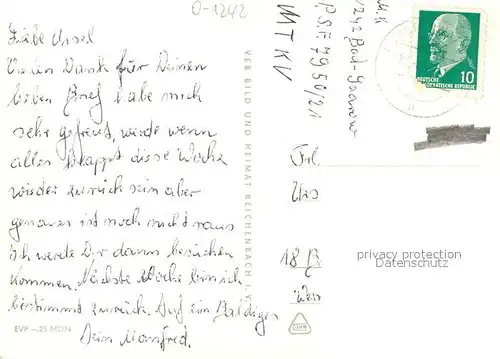 O-1242
Liebe Ursel
Vielen Dank für Deinen
lieben Brief habe mich
sehr gefreut, werde wenn
alles klappt diese Woche
wieder zurück sein aber
genaues ist noch nicht raus
Ich werde Dir dann besuchen
kommen. Nächste Woche bin ich
bestimmt zurück. Auf ein Baldiges
Dein Manfred.
EVP -,25 MDN
VEB BILD UND HEIMAT REICHENBACH I. V.
1242 Bad Saarow
PSF 7950/21
MTKV
DEUTSCHE
DEMOKRATISCHE REPUBLIK
10
Frl
Urs
18
privacy protection
Datenschutz